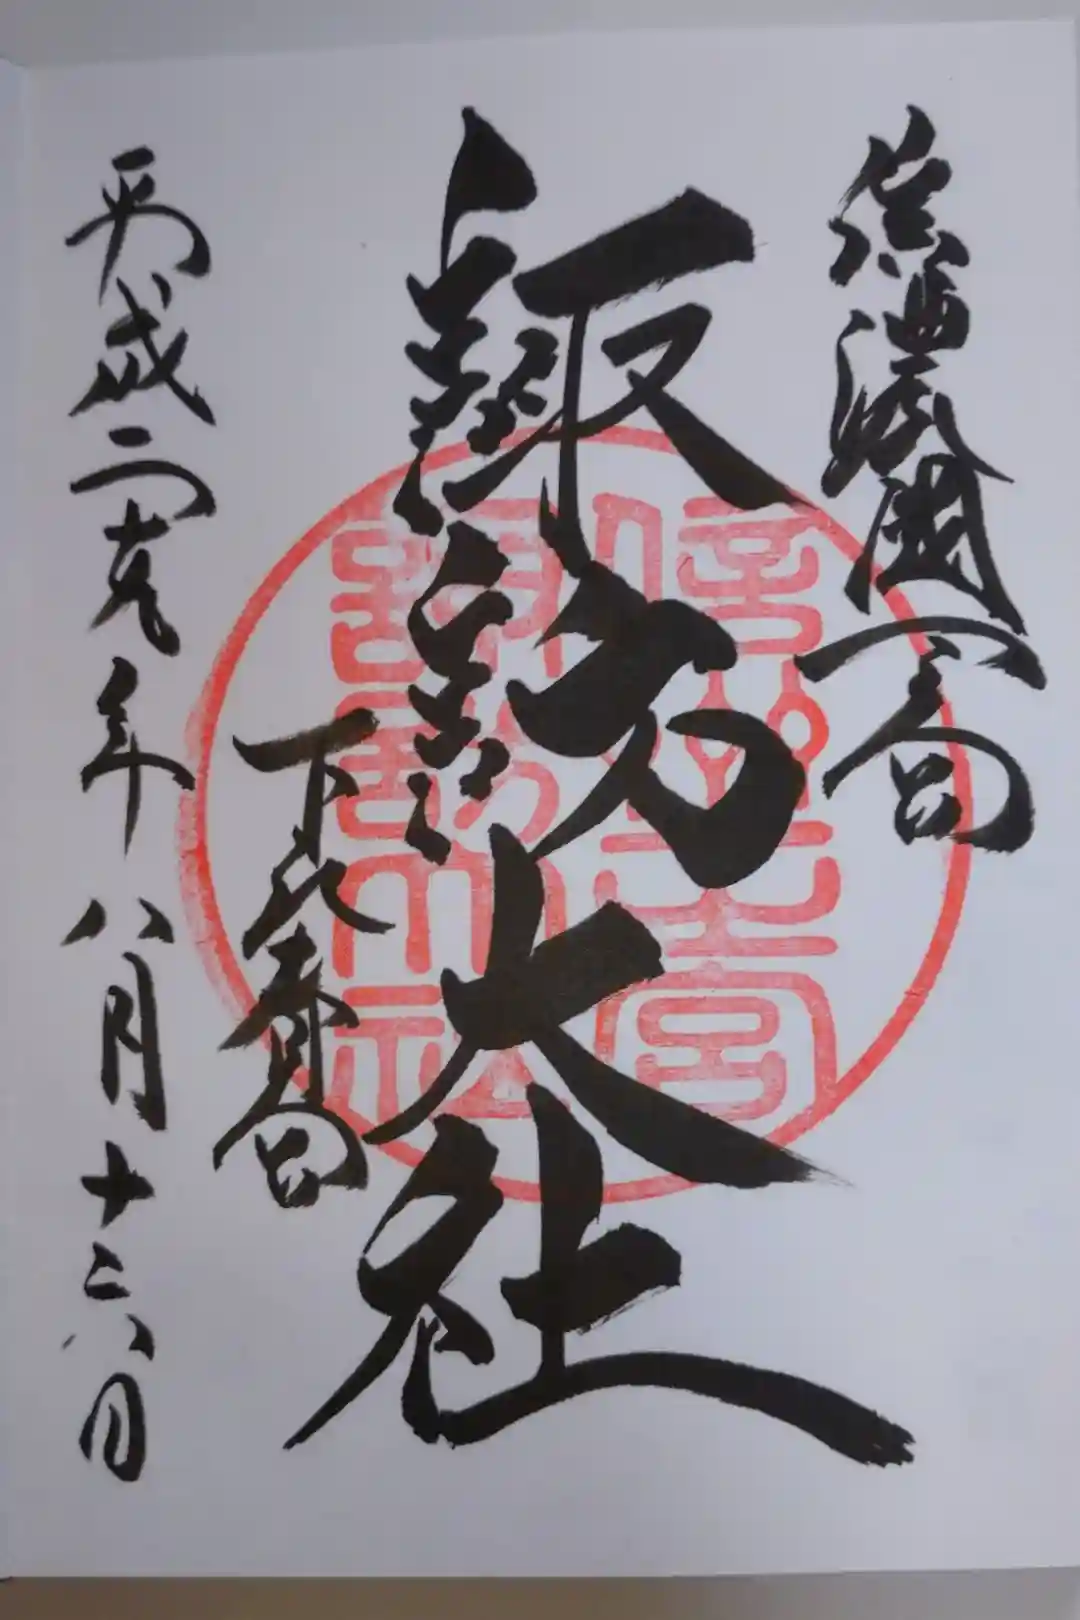 信濃國一之宮
諏訪大社
下社春宮
平成二十九年八月十六日
信州一之宮
諏訪大社